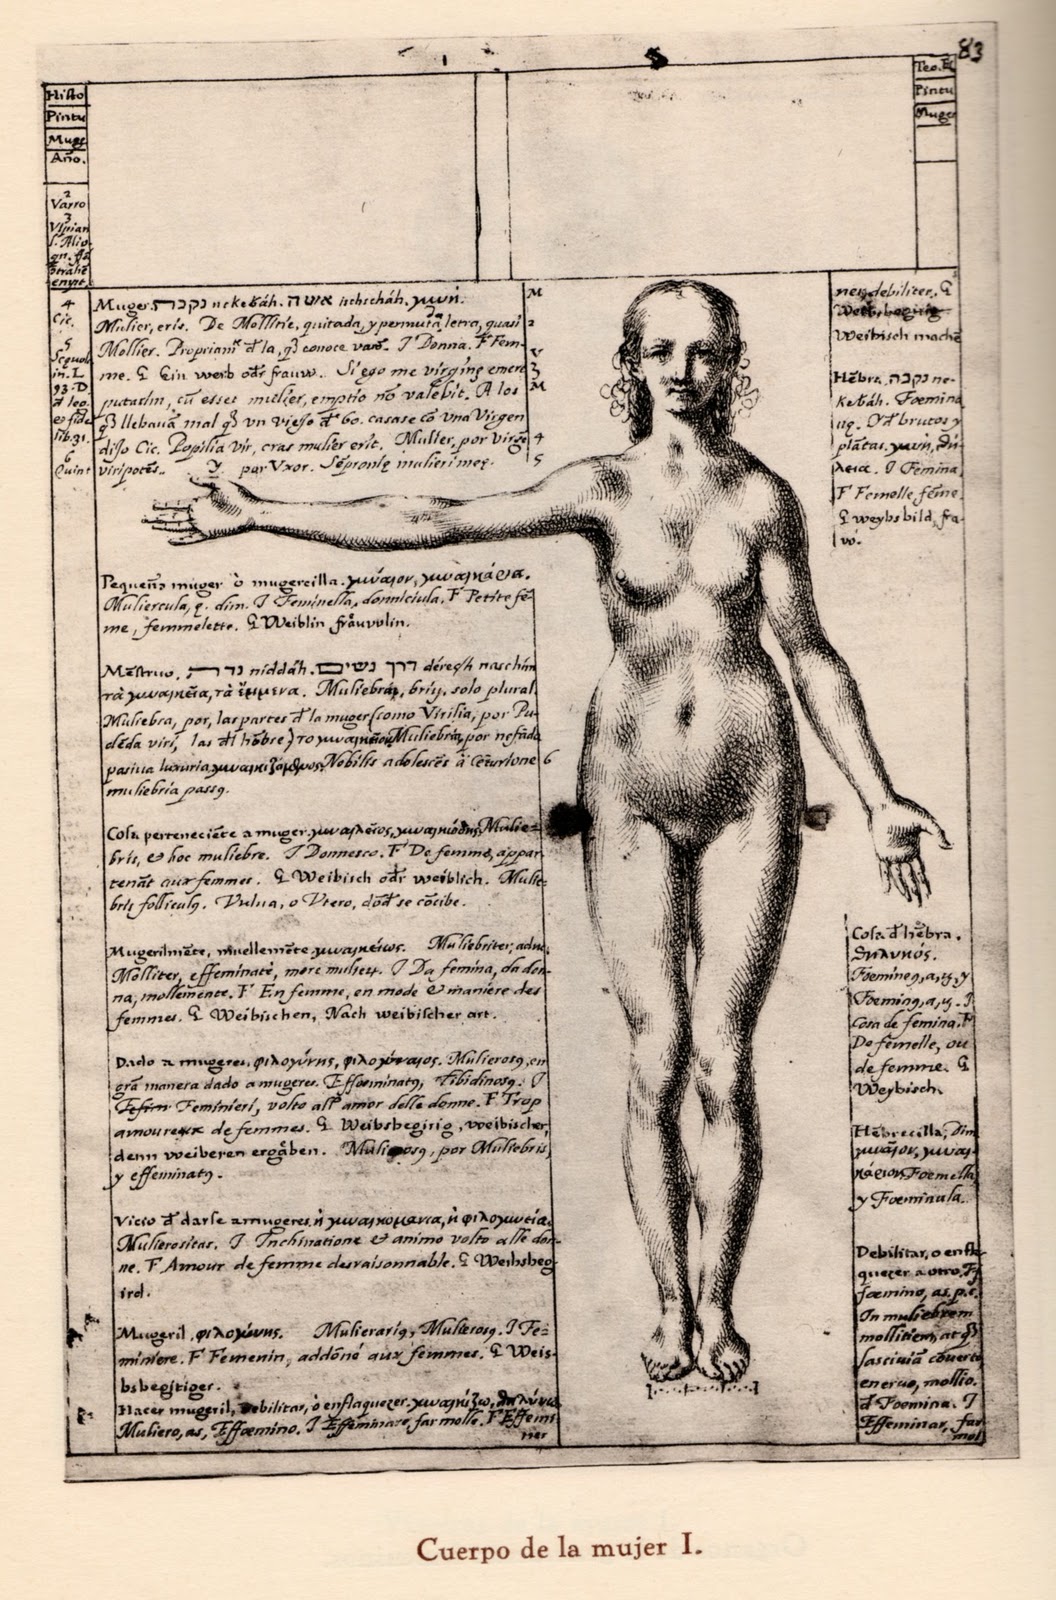 83
Histo
Pintu
Muge
Año.
2
Varro
3
Teo.
Pintu
Muge
4
Cic.
5
in. L
93. D
lib. 31.
6
Quint
Muger. נקבה nekebáh. אשה ischscháh. γυνή.
Mulier, eris. De Mollitie, quitada, y permutada letra, quasi
Mollier. I Donna. F Fem-
me. G Ein weib oder frauw. Si ego me virginē emere
putarem, cū esset mulier, emptio nō valebit. A los
q̃ llebauā mal q̃ un viejo đ 60. casase cō vna Virgen
dijo Cic. Popilia vir, cras mulier erit. Mulier, por virgē
viripotēs. Y por Vxor. Semproniȩ mulieri meȩ.
M
2
3
M
4
5
Pequeña muger ò mugercilla. γύναιον, γυναικάριον.
Muliercula, ȩ. dim. I Feminella, donniciula. F Petite fē-
me, femmelette. G Weiblin fräuvulin.
Mēstruo. נדה niddáh. דרך נשים dérech naschím
τὰ γυναικεῖα, τὰ ἔμμηνα. Muliebria, brium, solo plural.
Muliebria, por, las partes đ la muger (como Virilia, por Pu-
dēda viri, las đl hōbre) Muliebria, por nefāda
pasiua luxuria Nobilis adolescēs à cēturione 6
muliebria passus.
Cosa perteneciēte a muger. γυναικεῖος, γυναικώδης, Mulie-
bris, & hoc muliebre. I Donnesco. F De femme, appar-
tenāt aux femmes. G Weibisch oder weiblich. Mulie-
bris folliculus. Vulua, o Vtero, dōđ se cōcibe.
Mugerilmēte, muellemēte. γυναικείως. Muliebriter, adu.
Molliter, effeminatè, more mulierum. I Da femina, da don-
na, mollemente. F En femme, en mode & maniere des
femmes. G Weibischen, Nach weibischer art.
Dado a mugeres, φιλογύνης, φιλογύναιος. Mulierosus, en
grā manera dado a mugeres. Effoeminatus, libidinosus. I
Feminieri, volto all' amor delle donne. F Trop
amoureux de femmes. G Weibsbegirig, weibischer,
denn weiberen ergäben. Mulierosus, por Muliebris,
y effeminatus.
Vicio đ darse a mugeres. ἡ γυναικομανία, ἡ φιλογυνία.
Mulierositas. I Inchinatione & animo volto alle don-
ne. F Amour de femme desraisonnable. G Weibsbeg-
ird.
Mugeril, φιλογύνης. Mulierarius, Mulierosus. I Fe-
miniere. F Femenin, addōné aux femmes. G Weis-
bsbegitiger.
Hacer mugeril, debilitar, ò enflaquezer. γυναικίζω, θηλύνω
Muliero, as, Effoemino. I Effeminare, far molle. F Effemi
ner
ner, debiliter. G
Weibsbegirig
Weibisch machē
Hēbra, נקבה ne-
kebáh. Foemina
ȩ. Yđ brutos y
plātas. γυνή, θή-
λεια. I Femina.
F Femelle, féme.
G weybsbild, fra-
w.
Cosa đ hēbra.
θηλυκός.
Foemineus, a, um, y
Foeminus, a, um. I
Cosa de femina. F
De femelle, ou
de femme. G
Weybisch.
Hēbrecilla, Dim
γύναιον, γυναι-
κάριον Foemella,
y Foeminula.
Debilitar, o enfla-
quezer a otro, Ef
foemino, as. p. c.
In muliebrem
mollitiem, at q̃
lasciuiā cōuerto
eneruo, mollio.
đ Foemina. I
Effeminar, far
mol
Cuerpo de la mujer I.